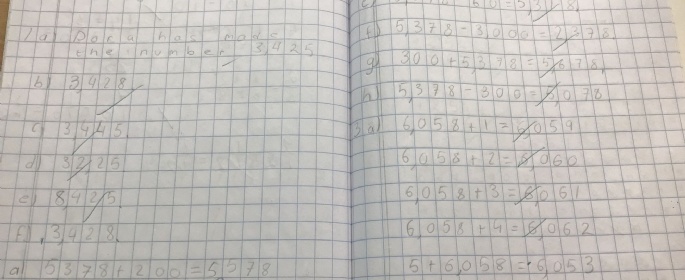 1a) Dora has made
the number 3,425
b) 3,428
c) 3,445.
d) 3,225
e) 8,425.
f) 3,428.
a) 5378+200=5,578
f) 5,378-3,000=2,378
g) 300+5,378=5,678
h) 5,378-300=5,078
3.a) 6,058+1=6,059
6,058+2=6,060
6,058+3=6,061
6,058+4=6,062
5+6,058=6,053